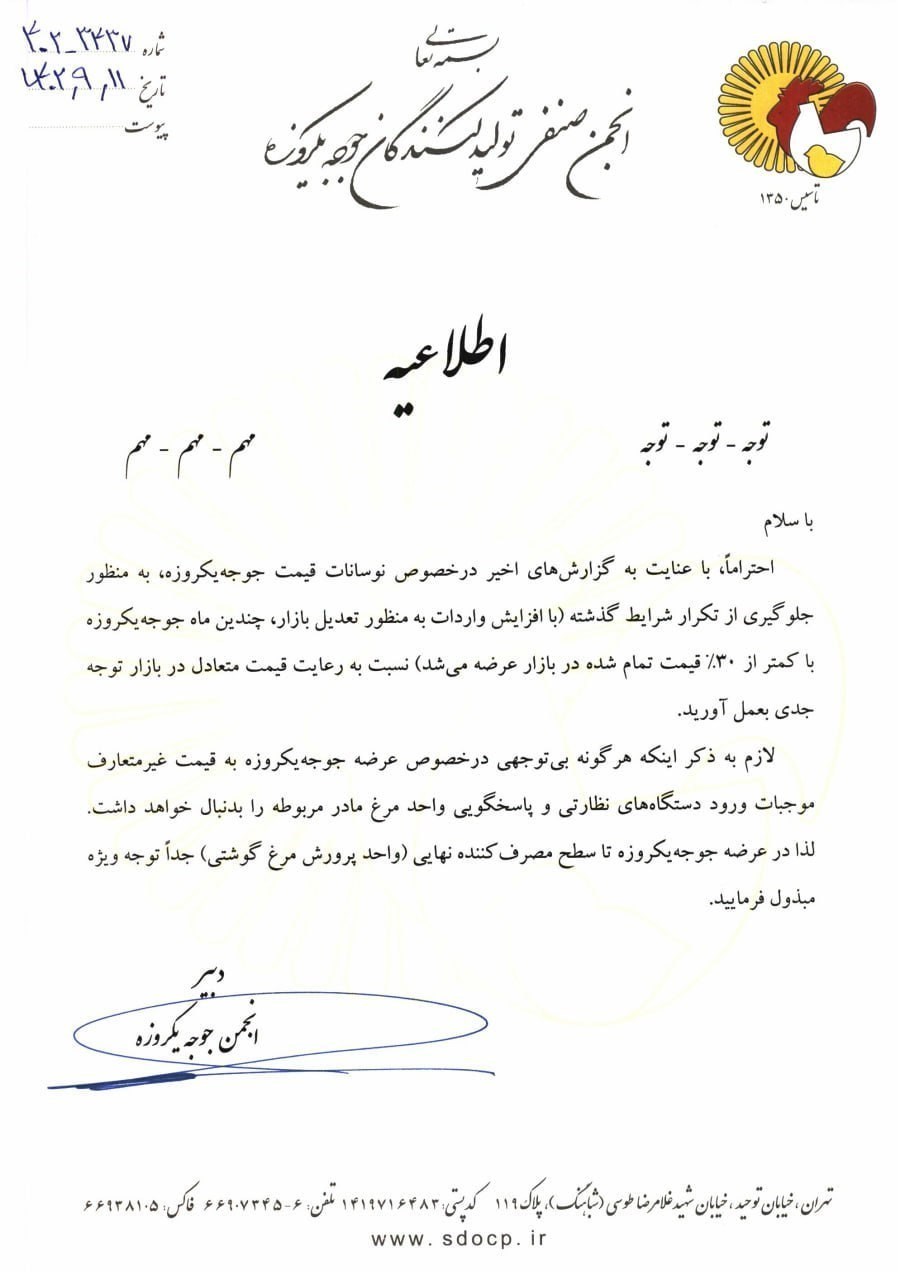 بسمه تعالی
انجمن صنفی تولید کنندگان جوجه یکروزه
تاسیس ۱۳۵۰
شماره ۴۰۲-۳۴۳۷
تاریخ ۱۴۰۲,۹,۱۱
پیوست
اطلاعیه
توجه - توجه - توجه
مهم - مهم - مهم
با سلام
احتراماً، با عنایت به گزارش‌های اخیر درخصوص نوسانات قیمت جوجه‌یکروزه، به منظور
جلوگیری از تکرار شرایط گذشته (با افزایش واردات به منظور تعدیل بازار، چندین ماه جوجه‌یکروزه
با کمتر از ۳۰٪ قیمت تمام شده در بازار عرضه می‌شد) نسبت به رعایت قیمت متعادل در بازار توجه
جدی بعمل آورید.
لازم به ذکر اینکه هرگونه بی‌توجهی درخصوص عرضه جوجه‌یکروزه به قیمت غیرمتعارف
موجبات ورود دستگاه‌های نظارتی و پاسخگویی واحد مرغ مادر مربوطه را بدنبال خواهد داشت.
لذا در عرضه جوجه‌یکروزه تا سطح مصرف‌کننده نهایی (واحد پرورش مرغ گوشتی) جداً توجه ویژه
مبذول فرمایید.
دبیر
انجمن جوجه یکروزه
تهران، خیابان توحید، خیابان شهید غلامرضا طوسی (شباهنگ)، پلاک ۱۱۹ کدپستی: ۱۴۱۹۷۱۶۴۸۳ تلفن: ۶-۶۶۹۰۷۳۴۵ فاکس: ۶۶۹۳۸۱۰۵
www. sdocp. ir